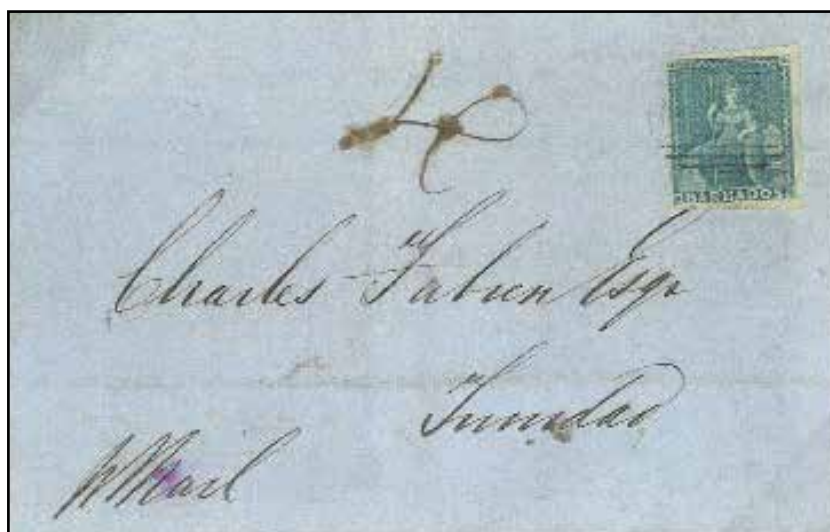 BARBADOS
Charles Fabien Esqr
Trinidad
Mail